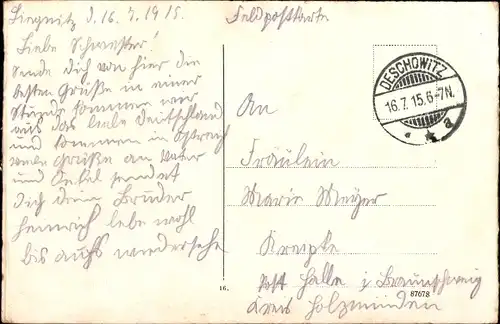 Liegnitz d. 16.7.1915.
Feldpostkarte
Liebe Schwester!
Sende dich von hier die
besten Grüße in einer
Stunde kommen wir
aus das liebe Deutschland
und kommen in Östreich
viele Grüße an Vater
und sendet
dich dein Bruder
Heinrich lebe wohl
bis aufs wiedersehe
DESCHOWITZ
16.7.15.6-7N.
* * a
An
Fräulein
Marie Meyer
Kreipke
Post Halle i Braunschweig
Kreis Holzminden
16.
87678